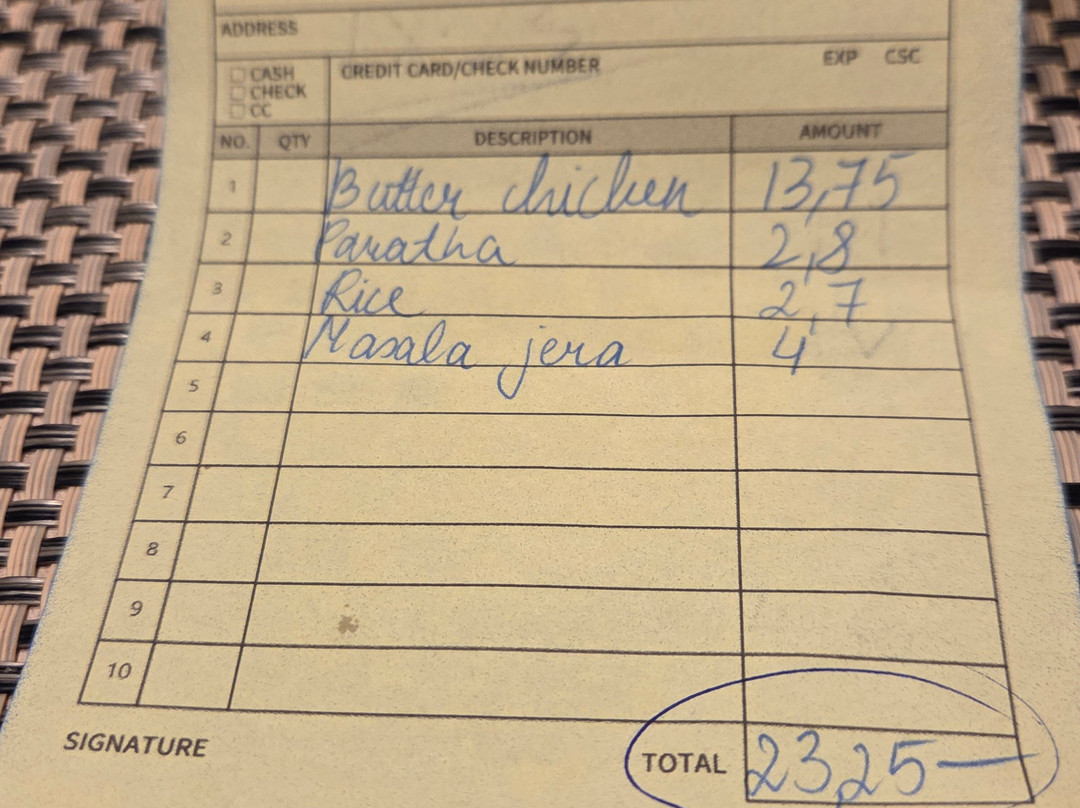 ADDRESS
CASH
CHECK
CC
CREDIT CARD/CHECK NUMBER EXP CSC
NO. QTY DESCRIPTION AMOUNT
1 Butter chicken 13,75
2 Paratha 2,8
3 Rice 2,7
4 Masala jera 4
5
6
7
8
9
10
SIGNATURE TOTAL 23,25—